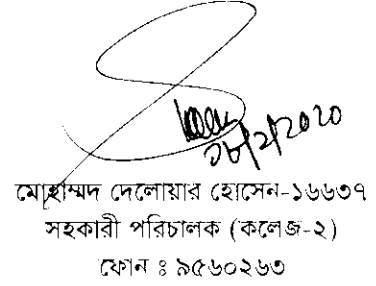 ২৮/2/2020
মোহাম্মদ দেলোয়ার হোসেন-১৬৬৩৭
সহকারী পরিচালক (কলেজ-২)
ফোন ঃ ৯৫৬০২৬৩